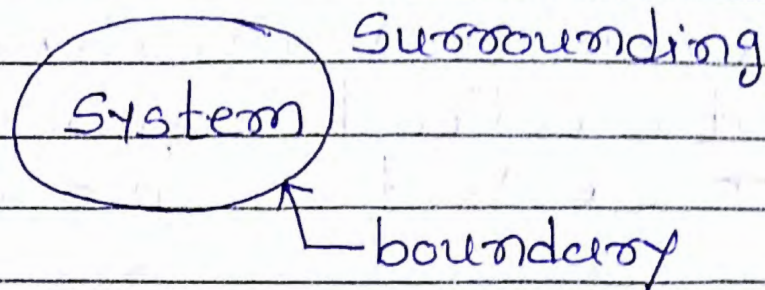 Surrounding
System
boundary